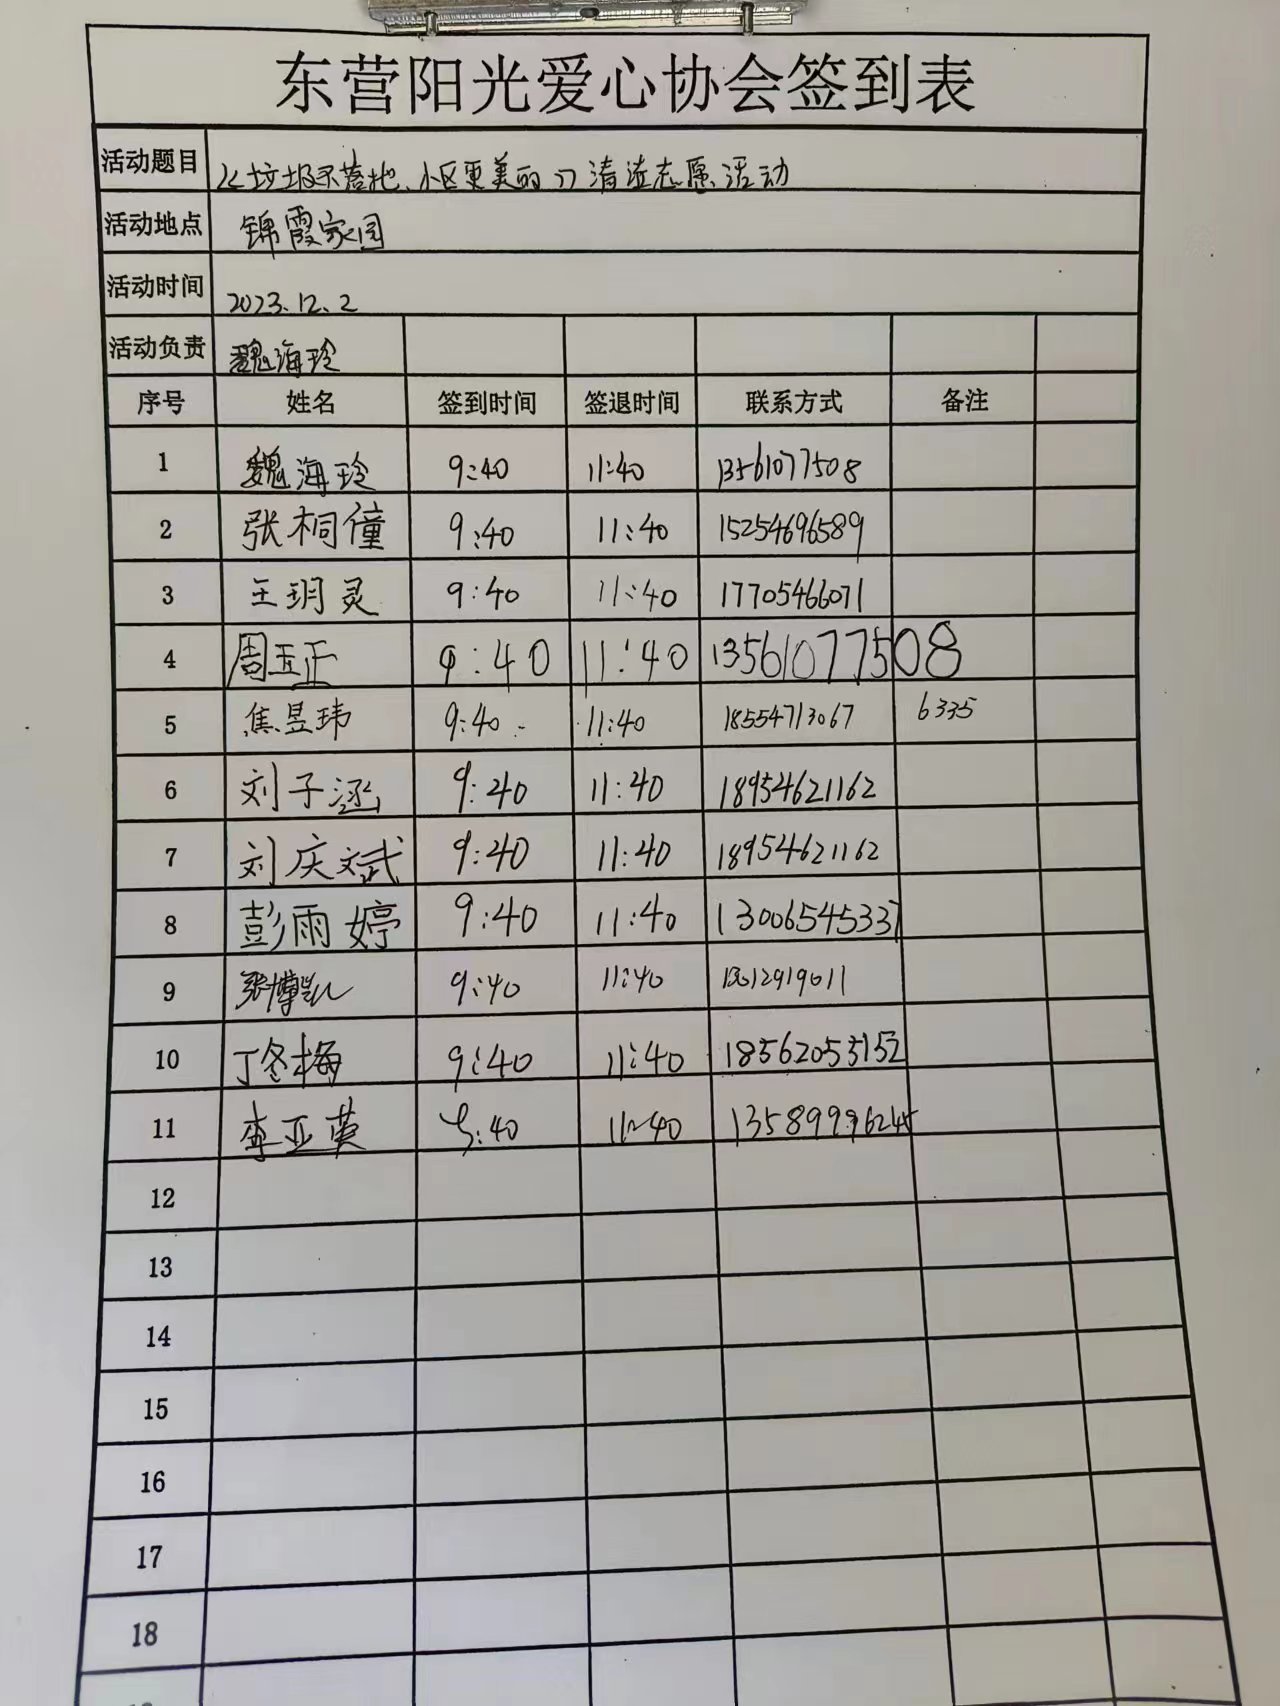 东营阳光爱心协会签到表
活动题目 《垃圾不落地、小区更美的》清洁志愿活动
活动地点 锦霞家园
活动时间 2023.12.2
活动负责 魏海玲
序号 姓名 签到时间 签退时间 联系方式 备注
1 魏海玲 9:40 11:40 13561077508
2 张桐僮 9:40 11:40 15254696589
3 王玥灵 9:40 11:40 17705466071
4 周玉正 9:40 11:40 13561077508
5 焦昱玮 9:40 11:40 18554713067 6335
6 刘子涵 9:40 11:40 18954621162
7 刘庆斌 9:40 11:40 18954621162
8 彭雨婷 9:40 11:40 13006545337
9 张博凯 9:40 11:40 13012919011
10 丁冬梅 9:40 11:40 18562055152
11 李亚英 9:40 11:40 13589996245
12
13
14
15
16
17
18